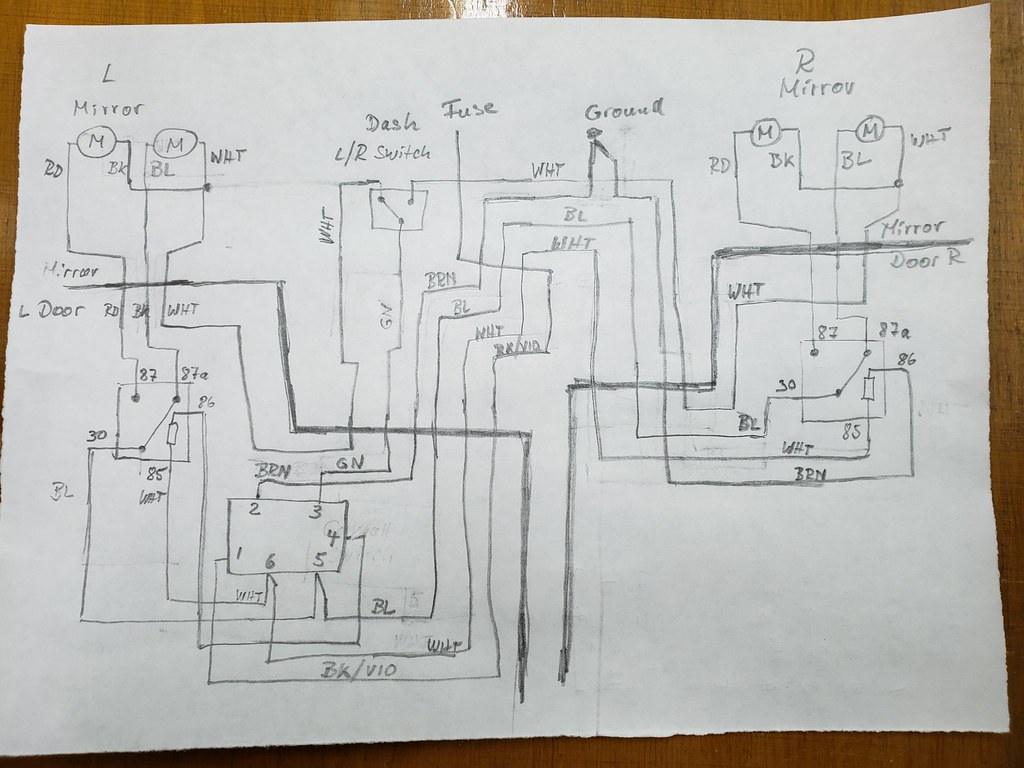 L
Mirror
M
M
RD
BK
BL
WHT
Dash
L/R Switch
Fuse
Ground
R
Mirror
M
M
RD
BK
BL
WHT
WHT
WHT
BL
WHT
Mirror
Door R
Mirror
L Door
RD
BK
WHT
GN
BRN
BL
WHT
BK/VIO
WHT
87
87a
86
30
85
87
87a
86
30
85
BL
WHT
BRN
BL
WHT
BRN
GN
2
3
4
1
6
5
WHT
BL
WHT
BK/VIO